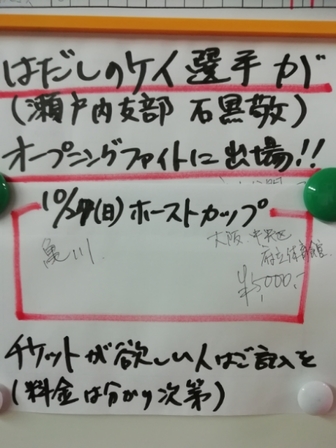 はだしのケイ選手が
(瀬戸内支部 石黒敬)
オープニングファイトに出場!!
10/27(日)ホーストカップ
亀川
大阪 中央区
府立体育館
¥5,000.-
チケットが欲しい人はご記入を
(料金は分かり次第)